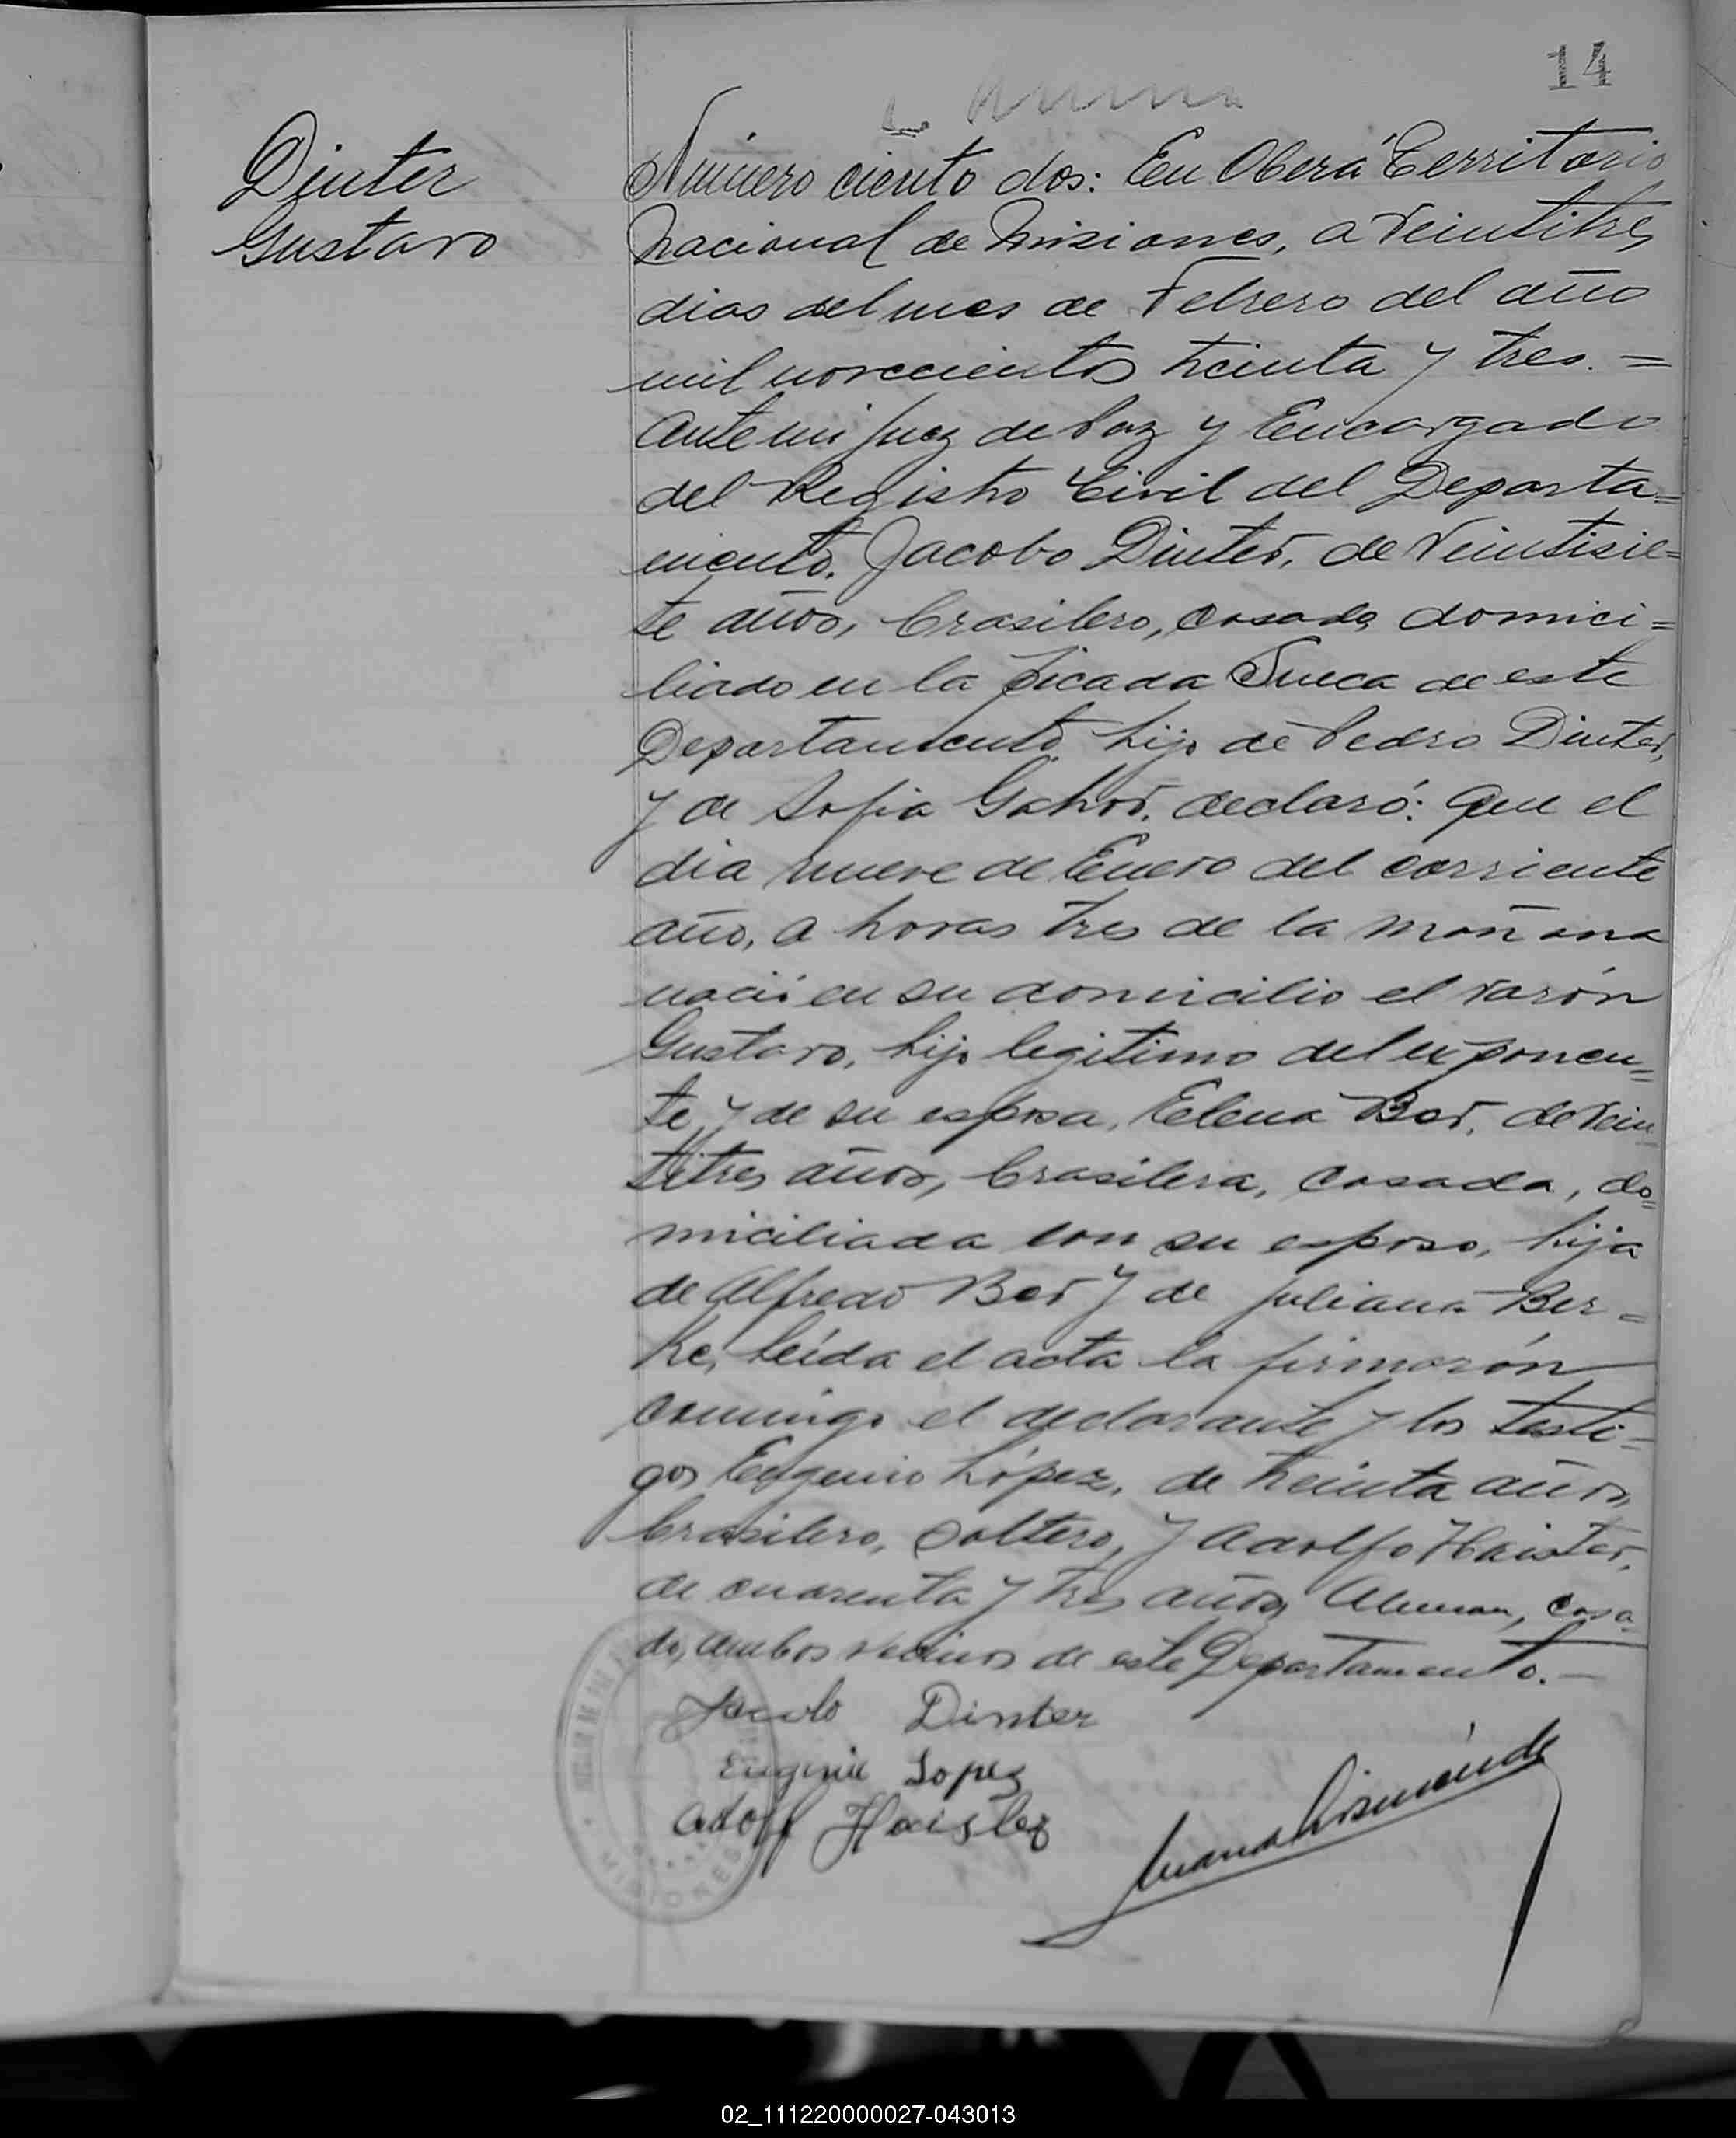 14
Dinter
Gustavo
Número ciento dos: En Oberá Territorio
Nacional de Misiones, a veintitres
dias del mes de Febrero del año
mil novecientos treinta y tres. =
Ante mi Juez de Paz y Encargado
del Registro Civil del Departa=
mento. Jacobo Dinter, de veintisie=
te años, brasilero, casado, domici=
liado en la picada Sueca de este
Departamento, hijo de Pedro Dinter,
y de Sofia declaró: Que el
dia nueve de Enero del corriente
año, a horas tres de la mañana
nació en su domicilio el varón
Gustavo, hijo legitimo del exponen=
te y de su esposa, Elena Ber, de vein
titres años, brasilera, casada, do=
miciliada con su esposo, hija
de Alfredo Ber y de Juliana Ber=
ke, leída el acta la firmarón
conmigo el declarante y los testi=
gos Eugenio López, de treinta años,
brasilero, soltero, y Adolfo Haister,
de cuarenta y tres años, Aleman, casa=
do, ambos vecinos de este Departamento.—
Dinter
Eugenio Lopez
Adolf Haisler
MISIONES
02_111220000027-043013